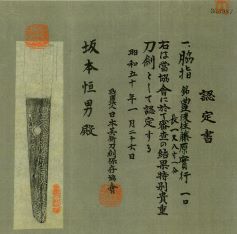 認定書
一、脇指 銘 豊後住藤原實行 一口
長一尺八寸一分
右は當協會に於て審査の結果特別貴重
刀劍として認定する
昭和五十年一月二十六日
財團法人日本美術刀劍保存協會
坂本恒男殿